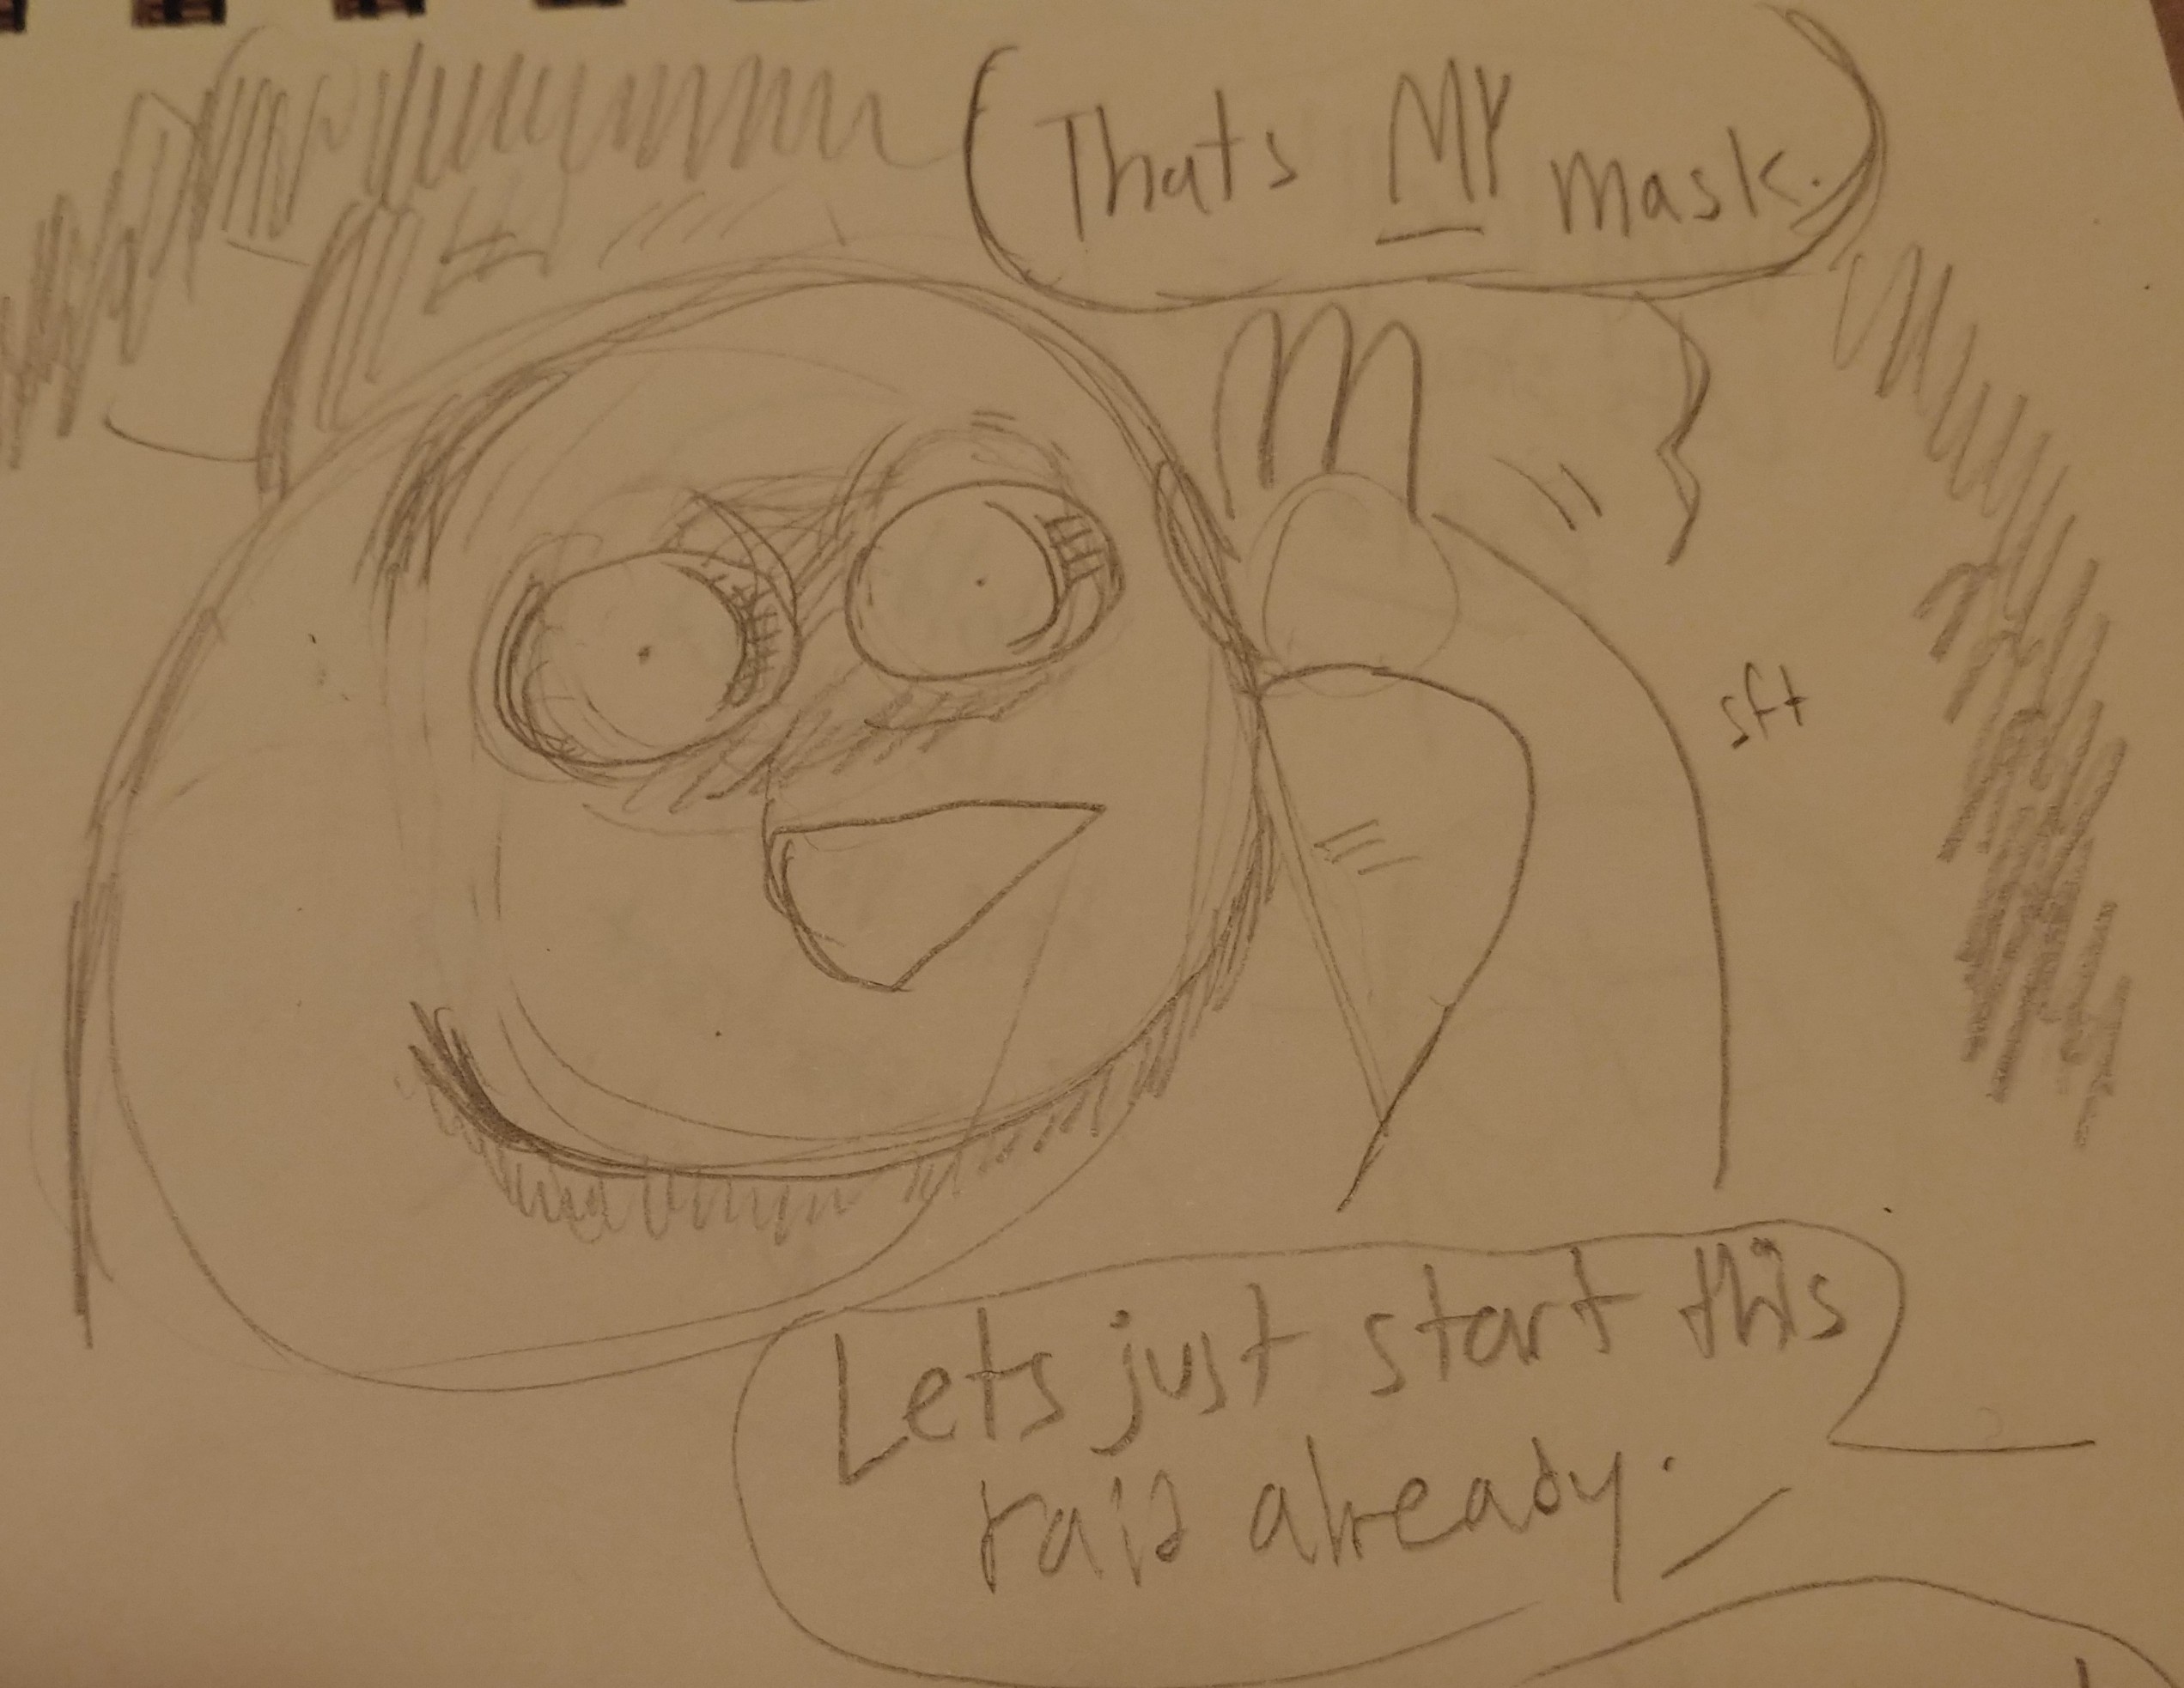 Thats MY mask.
sft
Lets just start this
raid already.